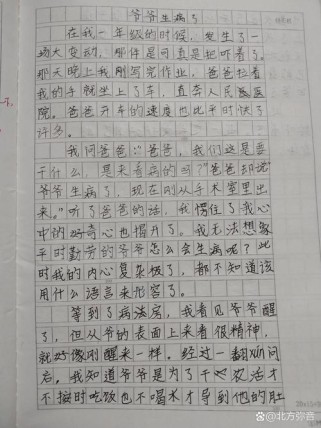 爷爷生病了
在我一年级的时候，发生了一
场大变动，那件是可真是把吓着了。
那天晚上我刚写完作业，爸爸拉着
我的手就坐上了车，直奔人民医
院。爸爸开车的速度也比平时快了
许多。
我问爸爸："爸爸，我们这是要
干什么，是来看病的吗？"爸爸却说
爷爷生病了，现在刚从手术室里出
来。"听了爸爸的话，我愣住了我心
中的好奇心也揭开了。我无法想象
平时勤劳的爷爷怎么会生病呢？此
时我的内心复杂极了，都不知道该
用什么语言来形容了。
等到了病房，我看见爷爷醒
了，但从爷的表面上来看很精神，
就好像刚醒来一样。经过一翻xún问
后。我知道爷爷是为了干农活才
不按时吃饭也不喝水才导到他的肚
@北方弥音